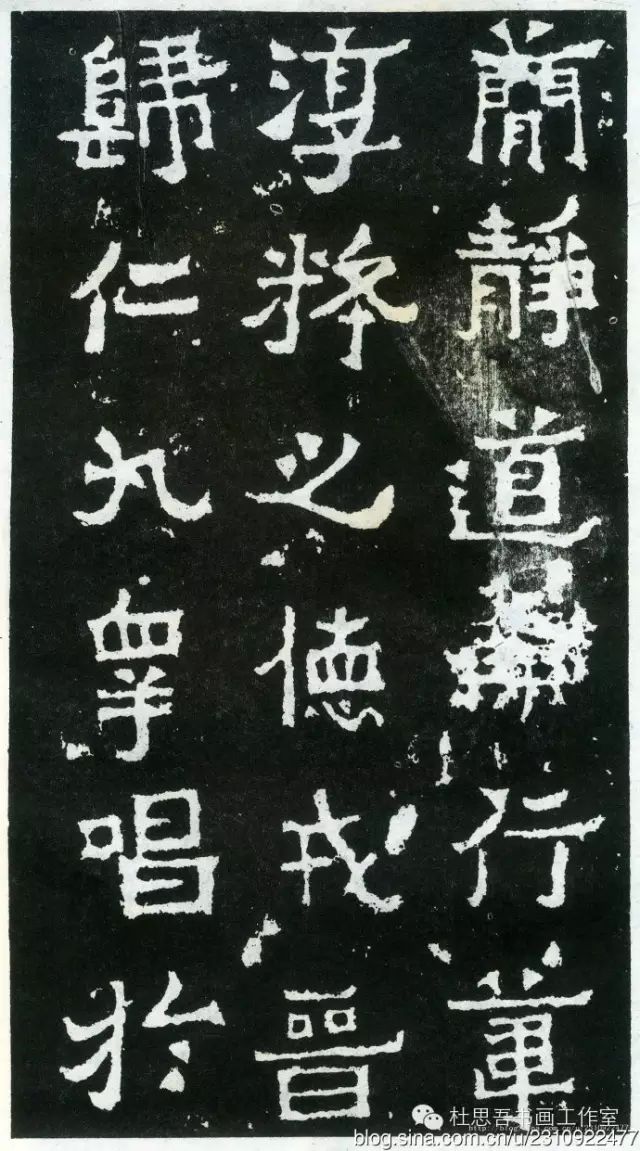 簡靜道兼行葦
淳粹之德戎晉
歸仁九皋唱於
杜思吾书画工作室
blog.sina.com.cn/u/2310922477